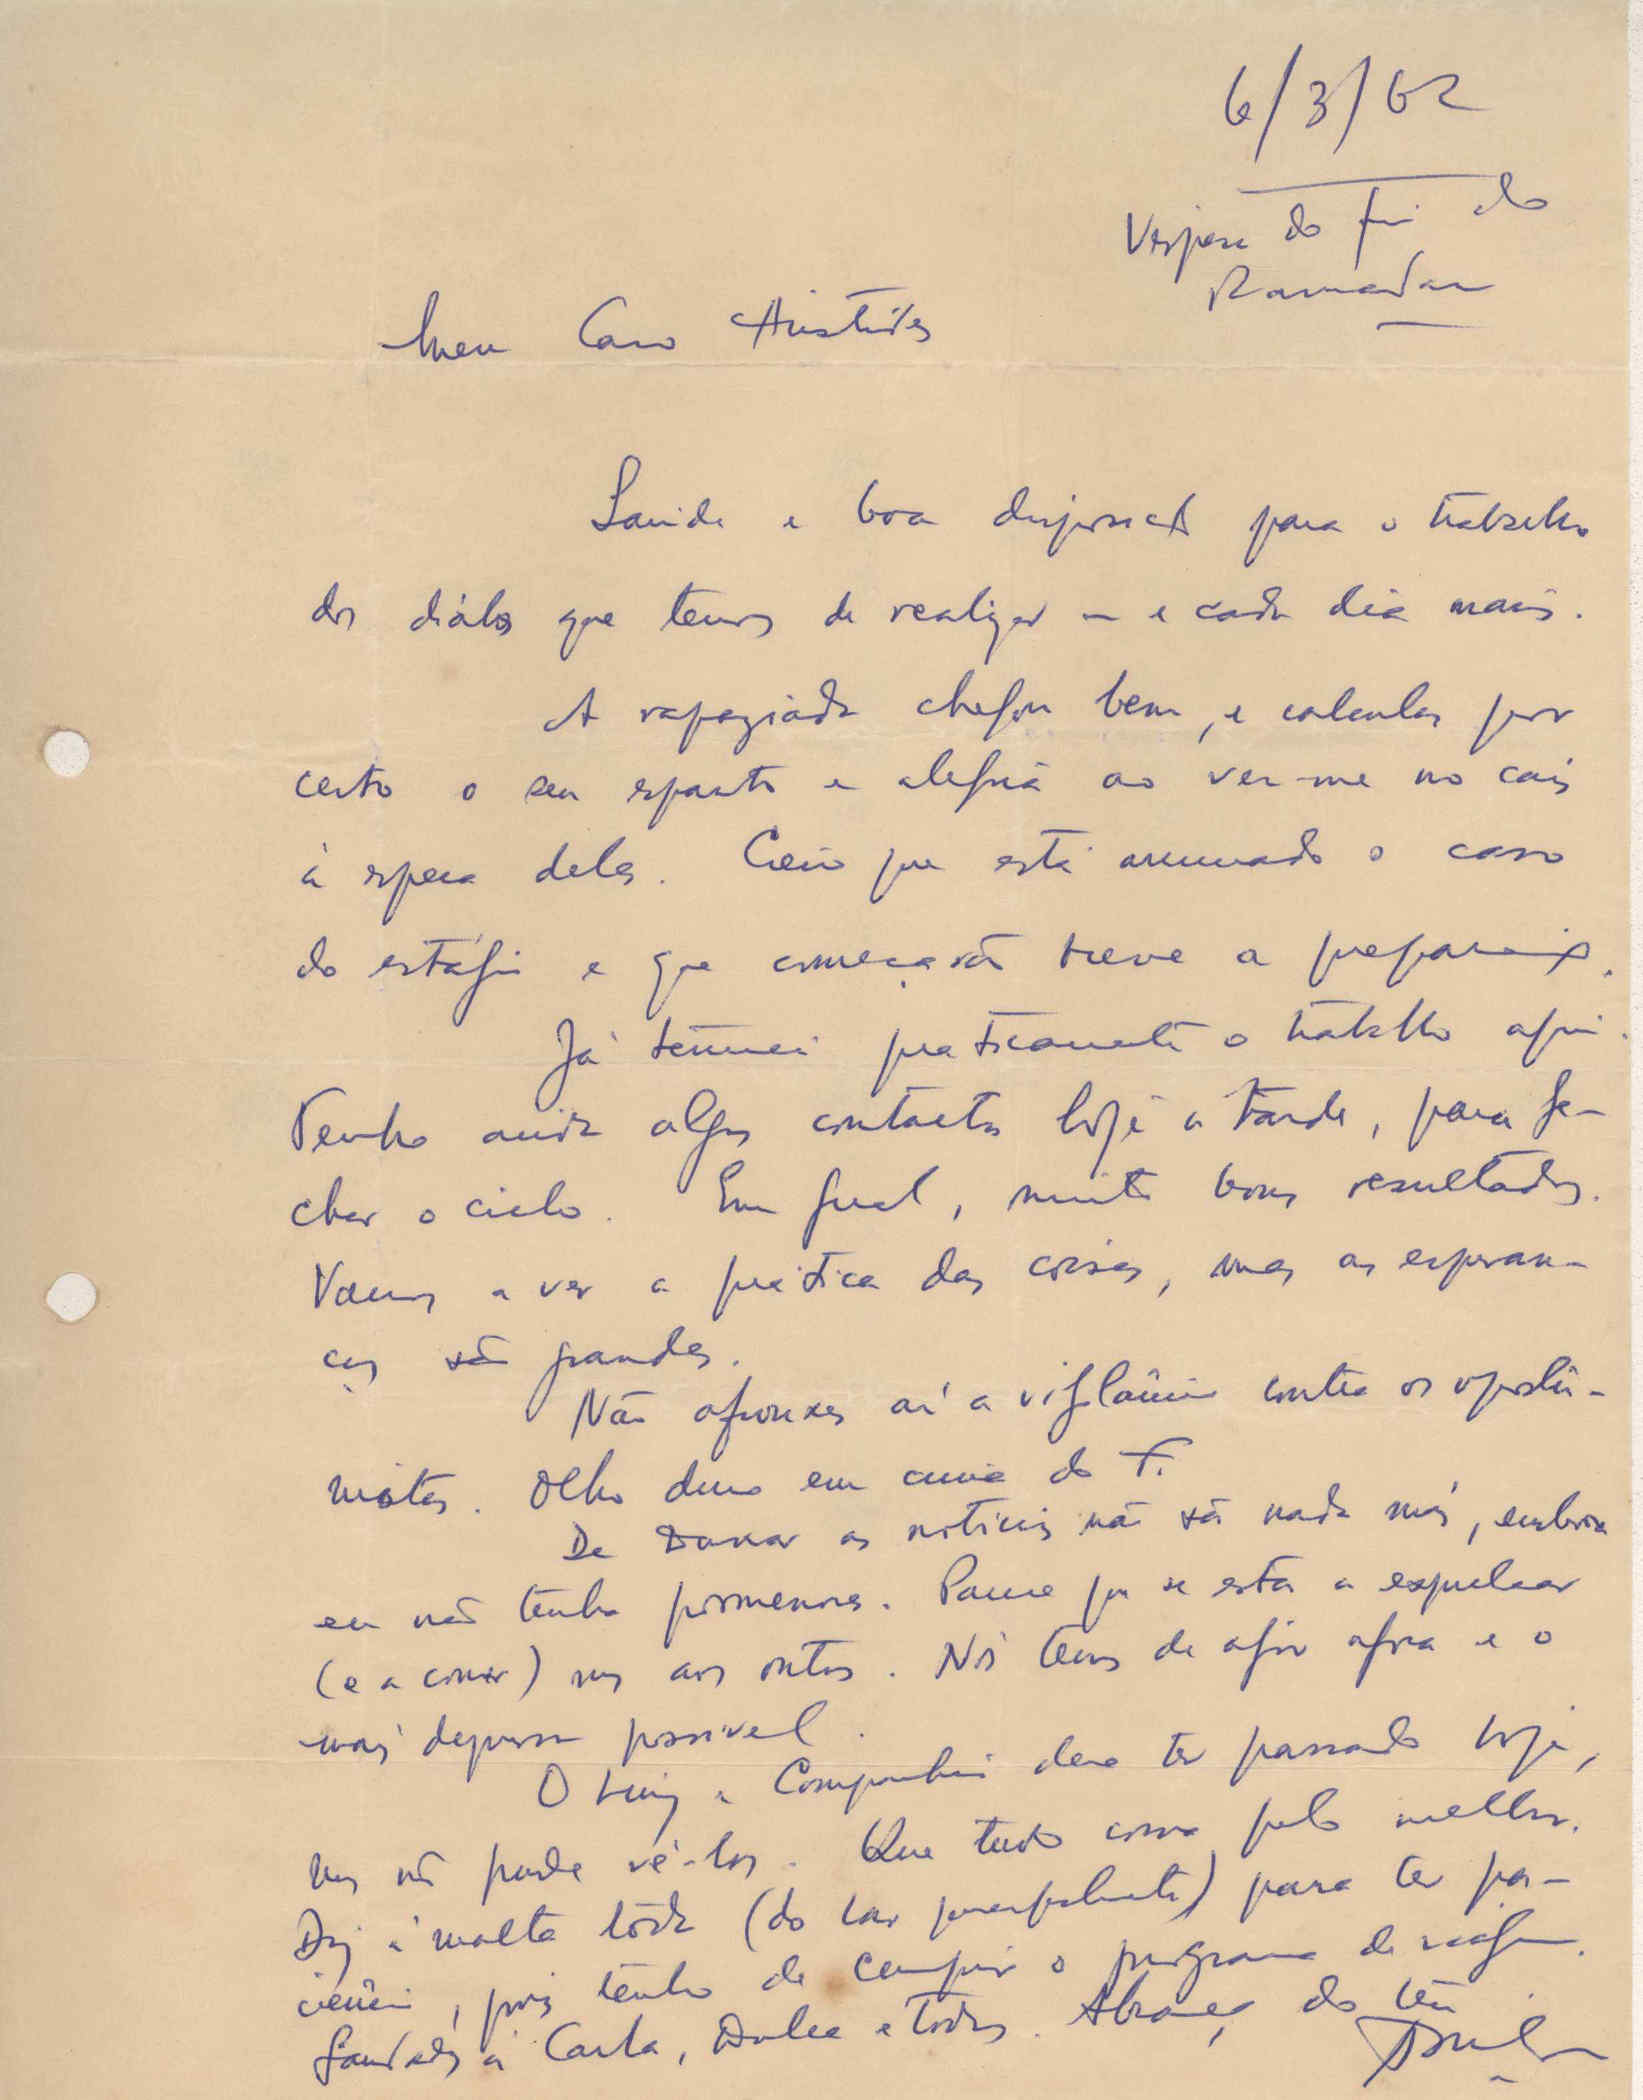 6/3/62
Véspera do fim do
Ramadan
Meu Caro Aristides
Saúde e boa disposição para o trabalho
dos diabos que temos de realizar — e cada dia mais.
A rapaziada chegou bem, e calculas por
certo o seu espanto e alegria ao ver-me no cais
à espera deles. Creio que está arrumado o caso
do estágio e que começarão breve a preparação.
Já terminei praticamente o trabalho aqui.
Tenho ainda alguns contactos hoje à tarde, para fe-
char o ciclo. Em geral, muito bons resultados.
Vamos a ver a prática das coisas, mas as esperan-
ças são grandes.
Não afrouxes aí a vigilância contra os oportu-
nistas. Olho duro em cima do F.
De Dakar as notícias não são nada más, embora
eu não tenha pormenores. Parece que se está a expulsar
(e a comer) uns aos outros. Nós temos de agir agora e o
mais depressa possível.
O Luiz e Companhia deve ter passado hoje,
mas não pude vê-los. Que tudo corra pelo melhor.
Diz à malta tôda (do Lar principalmente) para ter pa-
ciência, pois tenho de cumprir o programa de viagem.
Saudades à Carla, Dulce e todos. Abraço do teu